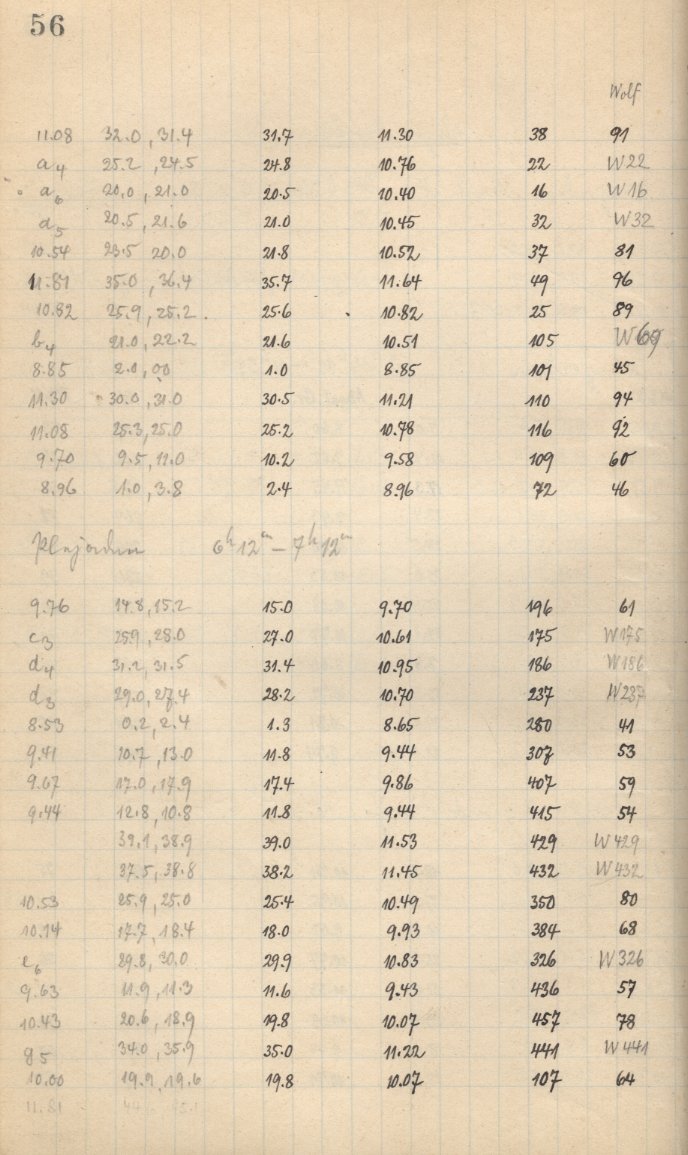 56
Wolf
11.08 32.0, 31.4 31.7 11.30 38 91
a4 25.2, 24.5 24.8 10.76 22 W22
a6 20.0, 21.0 20.5 10.40 16 W16
d5 20.5, 21.6 21.0 10.45 32 W32
10.54 23.5 20.0 21.8 10.52 37 81
11.81 35.0, 36.4 35.7 11.64 49 96
10.82 25.9, 25.2 25.6 10.82 25 89
b4 21.0, 22.2 21.6 10.51 105
8.85 2.0, 00 1.0 8.85 101 45
11.30 30.0, 31.0 30.5 11.21 110 94
11.08 25.3, 25.0 25.2 10.78 116 92
9.70 9.5, 11.0 10.2 9.58 109 60
8.96 1.0, 3.8 2.4 8.96 72 46
Plejaden 6h 12m – 7h 12m
9.76 14.8, 15.2 15.0 9.70 196 61
c3 25.9, 28.0 27.0 10.61 175 W175
d4 31.2, 31.5 31.4 10.95 186 W186
d3 29.0, 27.4 28.2 10.70 237 W237
8.53 0.2, 2.4 1.3 8.65 280 41
9.41 10.7, 13.0 11.8 9.44 307 53
9.67 17.0, 17.9 17.4 9.86 407 59
9.44 12.8, 10.8 11.8 9.44 415 54
39.1, 38.9 39.0 11.53 429 W429
37.5, 38.8 38.2 11.45 432 W432
10.53 25.9, 25.0 25.4 10.49 350 80
10.14 17.7, 18.4 18.0 9.93 384 68
e6 29.8, 30.0 29.9 10.83 326 W326
9.63 11.9, 11.3 11.6 9.43 436 57
10.43 20.6, 18.9 19.8 10.07 457 78
g5 34.0, 35.9 35.0 11.22 441 W441
10.00 19.9, 19.6 19.8 10.07 107 64
11.81